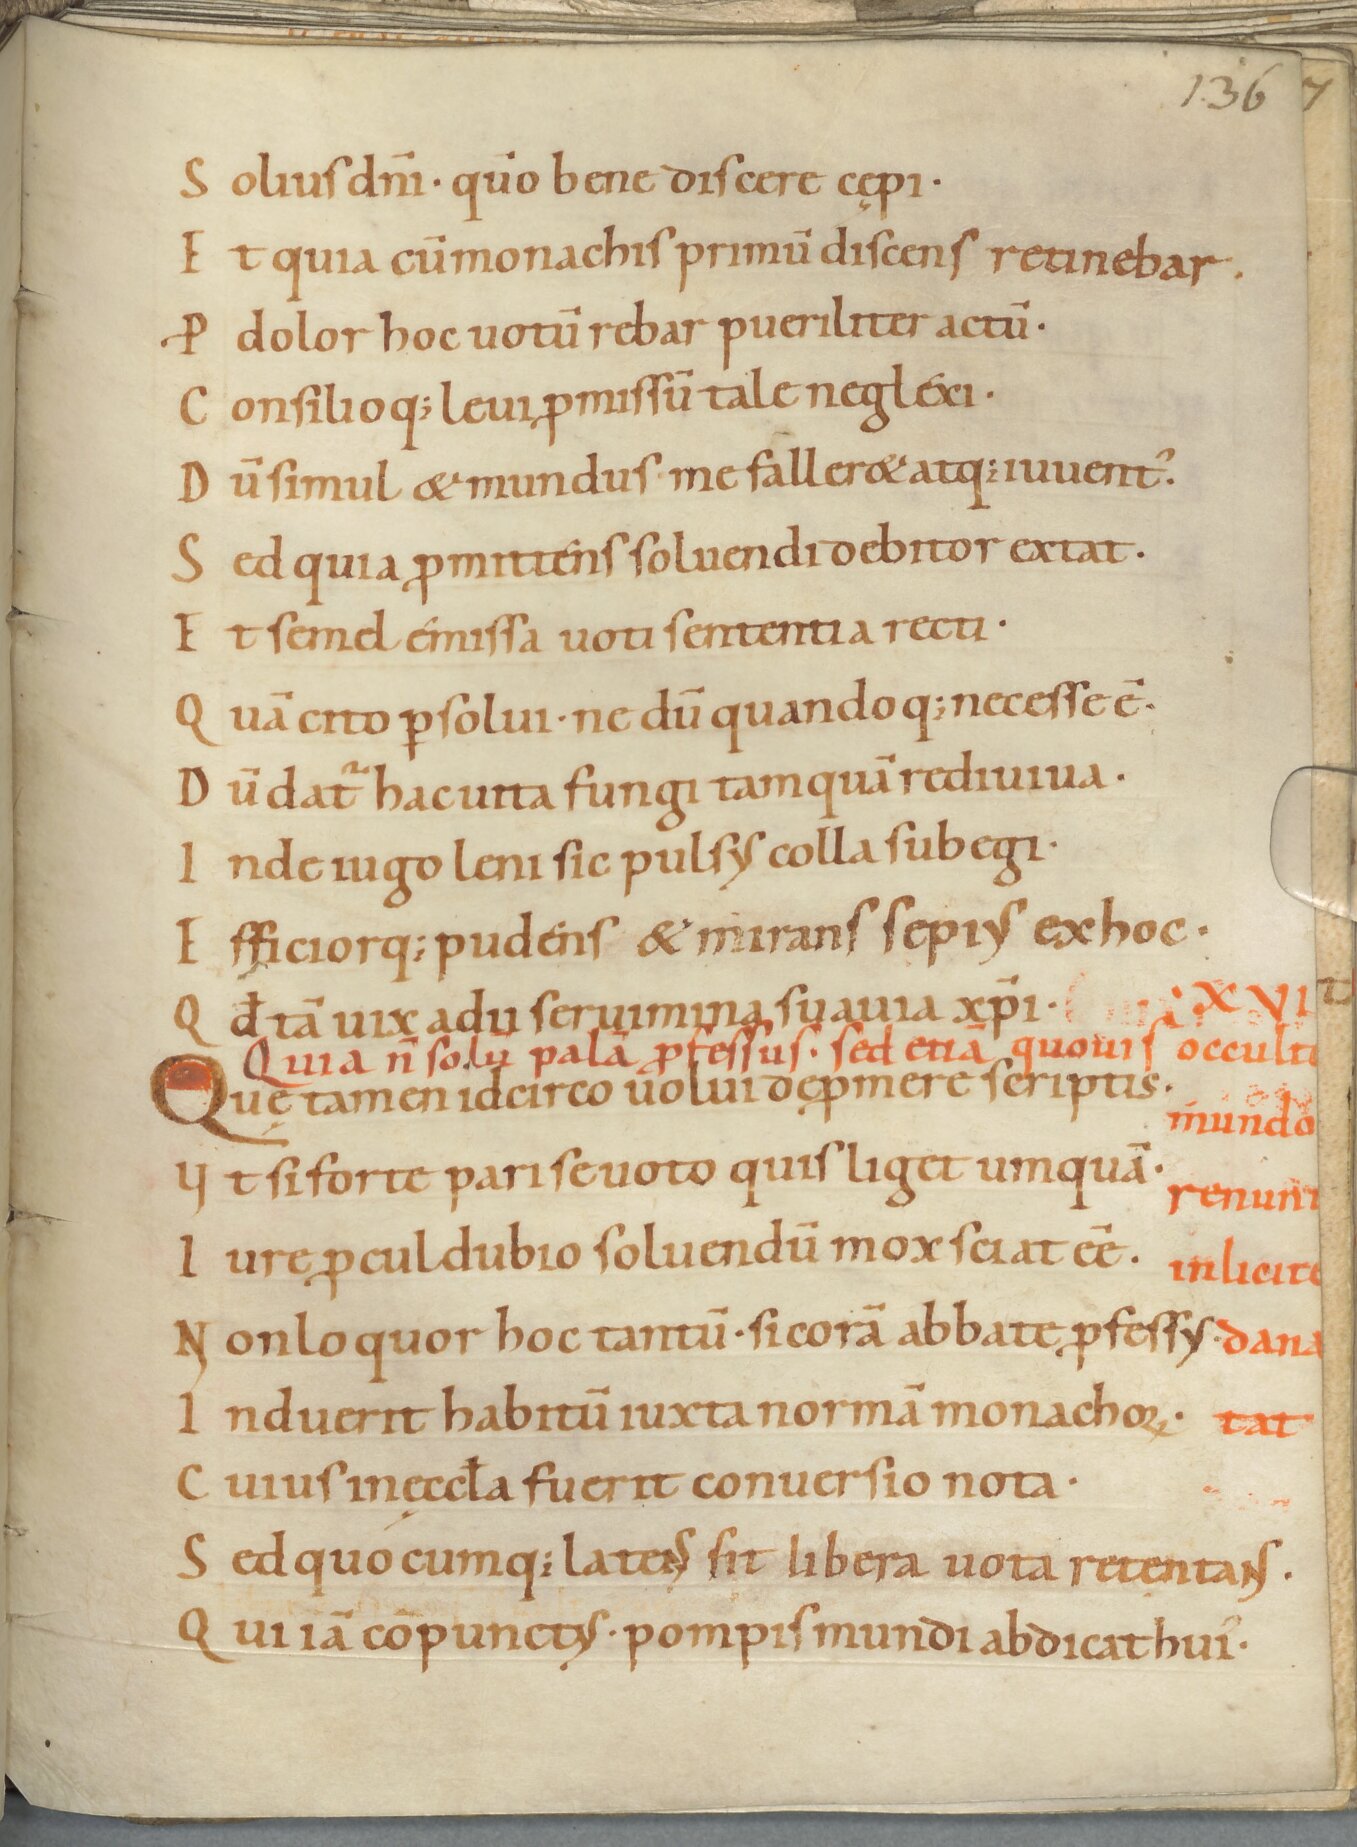 136 7
S oliuſ dn̄i · qūo bene diſcere cępi ·
E t quia cū monachiſ primū diſcenſ retinebar .
P dolor hoc uotū rebar pueriliter actū ·
C onſilioq; leui ꝓmiſſū tale negléxi ·
D ū ſimul & mundus me faller& atq; iuuent᾿.
S ed quia ꝓmitténſ ſoluendi debitor extat .
E t ſemel émiſſa uoti ſententia recti ·
Q uā cito ꝑſolui · ne dū quandoq; neceſſe ē .
D ū dat᷑ hac uita fungi tamquā rediuiua .
I nde iugo leni ſic pulſꝰ colla ſubegi .
E fficiorq; pudénſ & miranſ ſepiꝰ ex hoc .
Q đ tā uix adii ſeruimina ſuauia xp̄i . XVI
Quia n̄ ſolū palā ꝓfeſſuſ . ſed etiā quouiſ occulte
Quę tamen idcirco uolui depmere ſcriptis .
mundo
V t ſi forte pari ſe uoto quiſ liget umquā .
renunt
I ure ꝓcul dubio ſoluendū mox ſciat eē .
inlicite
N on loquor hoc tantū . ſi corā abbate ꝓfeſſꝰ . dana
I nduerit habitū iuxta normā monachoꝝ . tat
C uiuſ in ęccła fuerit conuerſio nota .
S ed quocumq; latenſ ſit libera uota retentanſ .
Q ui iā cōpunctꝰ . pompiſ mundi abdicat hui᾿ .